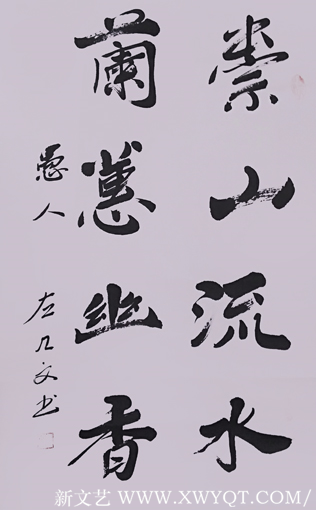 崇山流水
蘭蕙幽香
愚人 左几文书
新文艺 WWW.XWYQT.COM/